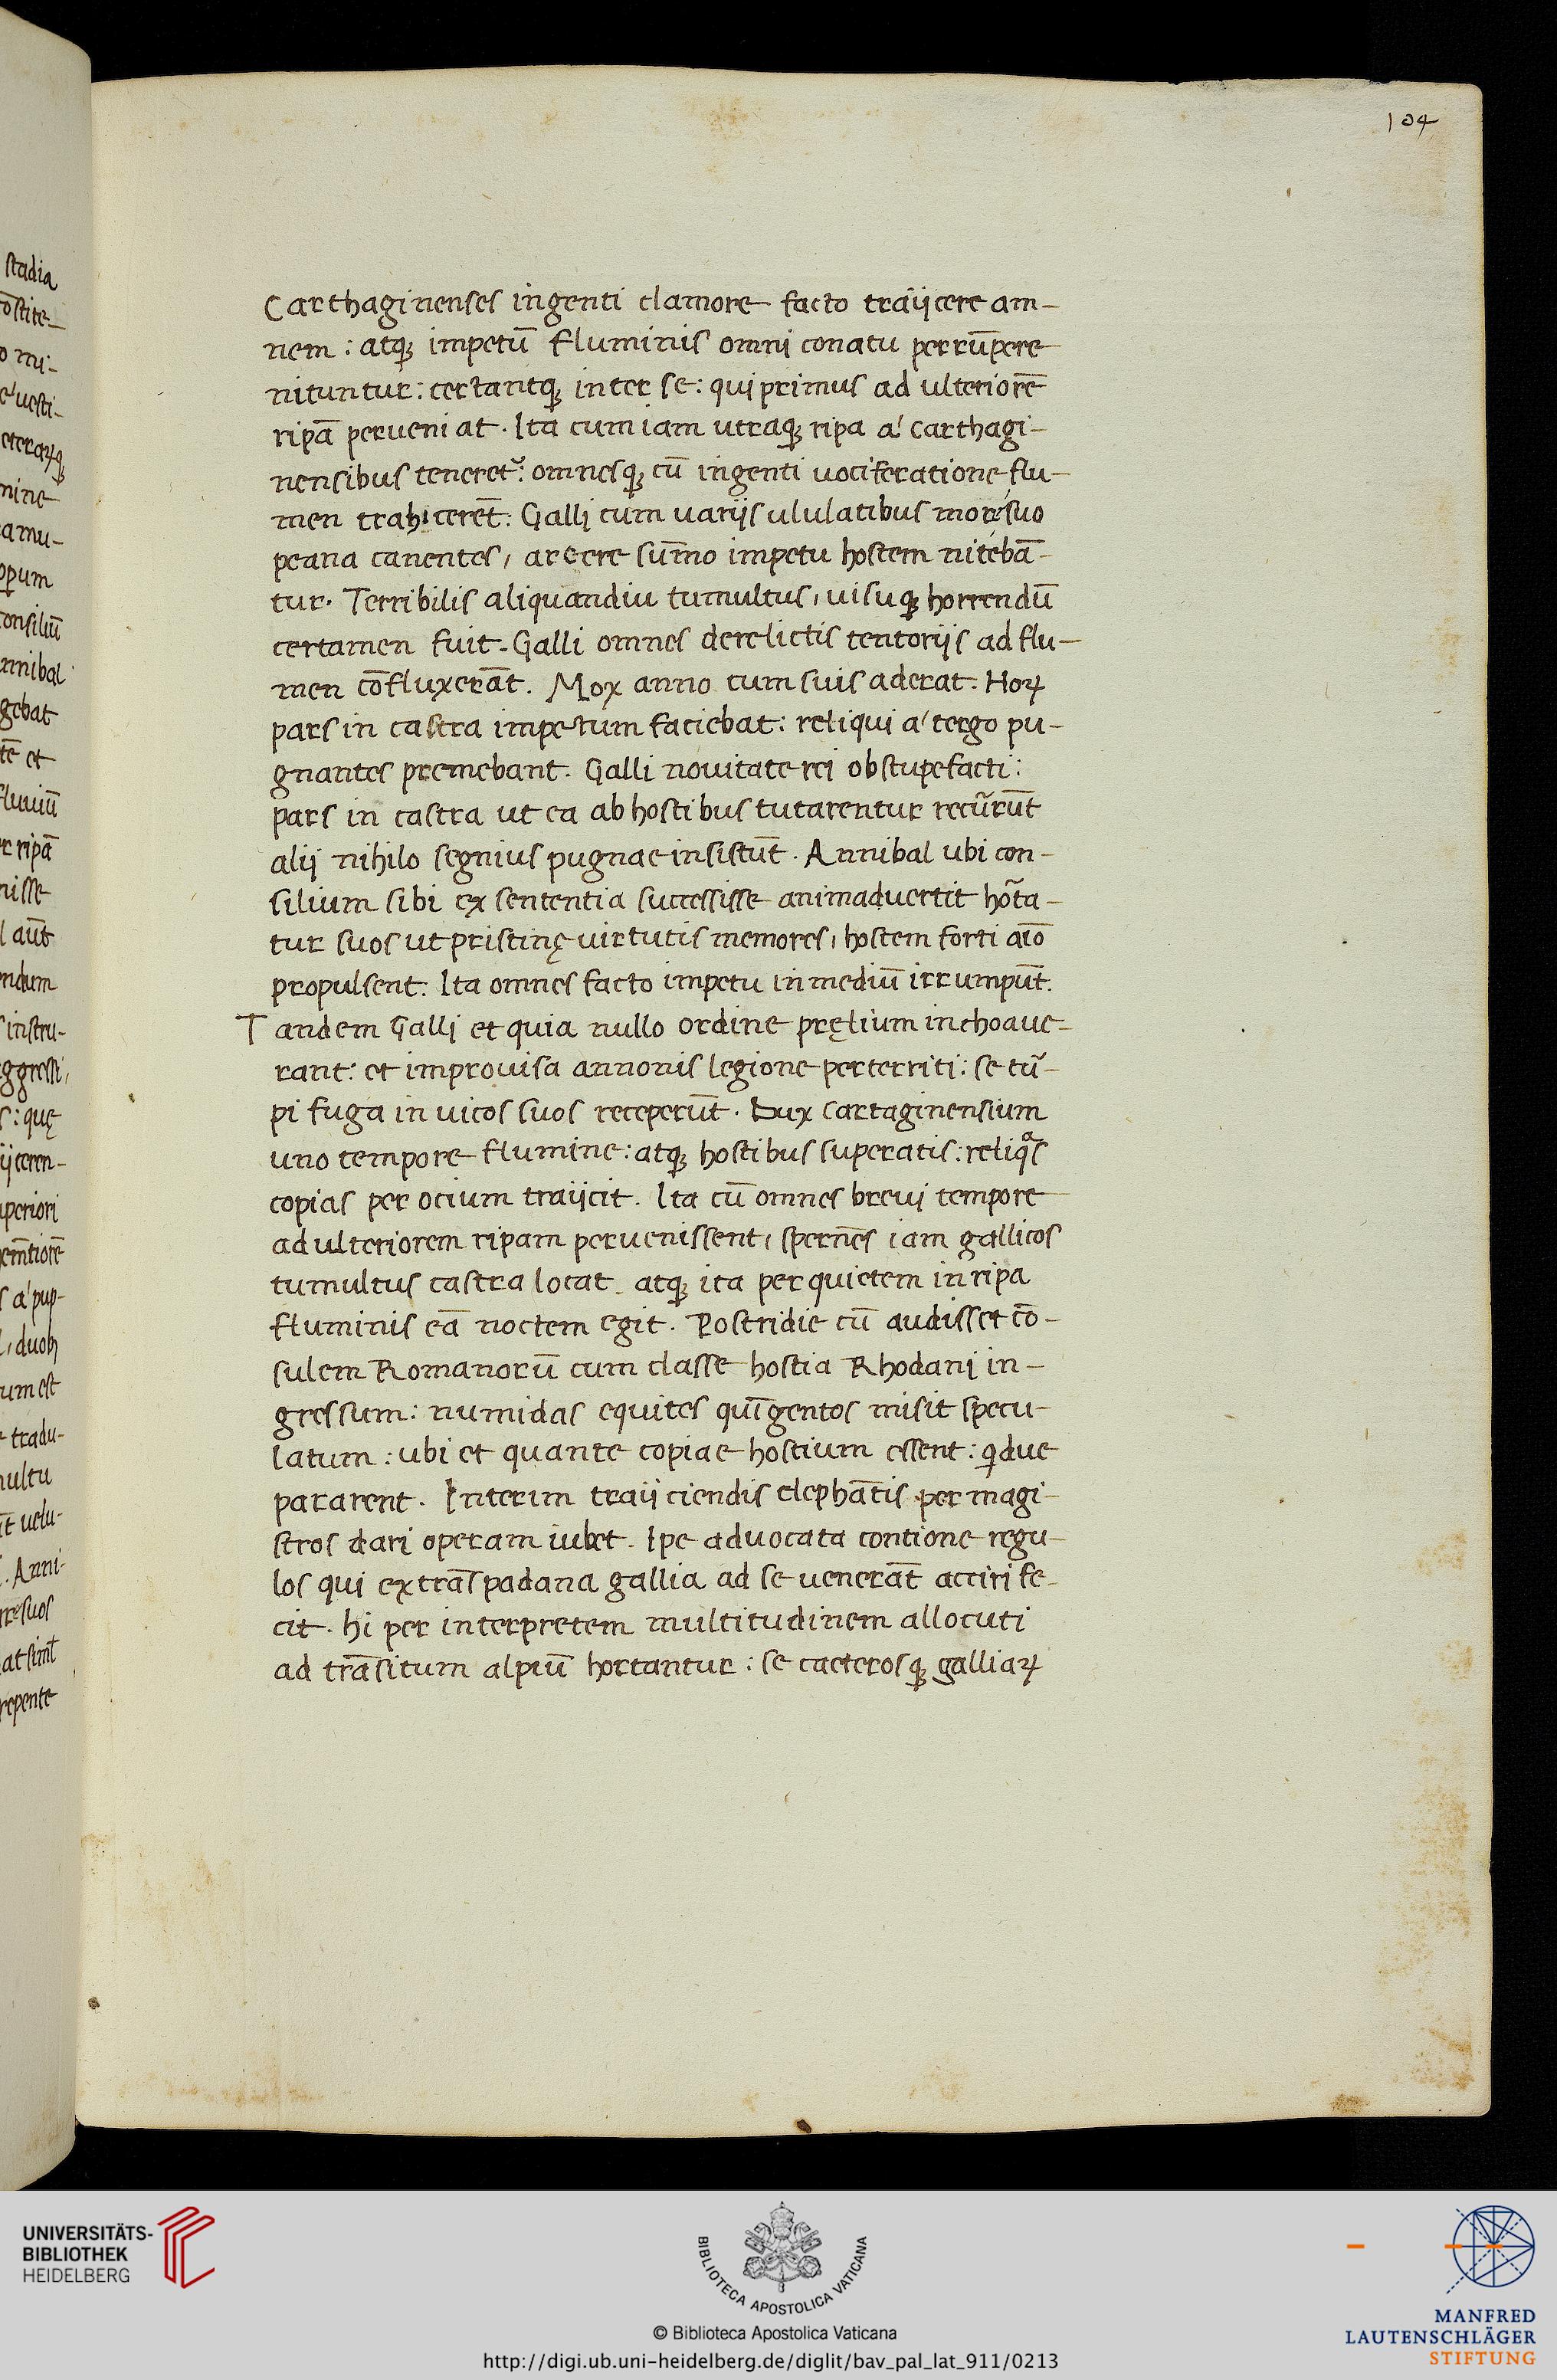 104
stadia
Carthaginenses ingenti clamore facto traijcere am-
nem: atq; impetū fluminis omni conatu perrūpere
nituntur: certantq; inter se: qui primus ad ulteriorē
ripā perueniat. Ita cum iam utraq; ripa a' carthagi-
nensibus teneret᷑: omnesq; cū ingenti uociferatione flu-
men trahicerēt: Galli cum uarijs ululatibus more suo
peana canentes, arcere sum̄o impetu hostem nitebā-
tur. Terribilis aliquandiu tumultus, uisuq; horrendū
certamen fuit. Galli omnes derelictis tentorijs ad flu-
men cōfluxerāt. Mox anno cum suis aderat. Hoꝝ
pars in castra impetum faciebat: reliqui a' tergo pu-
gnantes premebant. Galli nouitate rei obstupefacti:
pars in castra ut ea ab hostibus tutarentur recur̄rūt
alij nihilo segnius pugnae insistūt. Annibal ubi con-
silium sibi ex sententia successisse animaduertit hor̄ta-
tur suos ut pristinę uirtutis memores, hostem forti aīo
propulsent. Ita omnes facto impetu in mediū irrumpūt.
Tandem Galli et quia nullo ordine pręlium inchoaue-
rant: et improuisa annonis legione perterriti: se tur̄-
pi fuga in uicos suos receperūt. Dux cartaginensium
uno tempore flumine: atq; hostibus superatis: reliqᵃs
copias per ocium traijcit. Ita cū omnes breui tempore
ad ulteriorem ripam peruenissent, spernēs iam gallicos
tumultus castra locat. atq; ita per quietem in ripa
fluminis eā noctem egit. Postridie cū audisset cō-
sulem Romanorū cum classe hostia Rhodani in-
gressum: numidas equites quīgentos misit specu-
latum: ubi et quante copiae hostium essent: qͥdue
pararent. Interim traijciendis elephātis per magi-
stros dari operam iubet. Ip̄e aduocata contione regu-
los qui ex trāspadana gallia ad se uenerāt acciri fe-
cit. hi per interpretem multitudinem allocuti
ad trāsitum alpiū hortantur: se caeterosq; galliaꝝ
UNIVERSITÄTS-
BIBLIOTHEK
HEIDELBERG
BIBLIOTECA APOSTOLICA VATICANA
© Biblioteca Apostolica Vaticana
http://digi.ub.uni-heidelberg.de/diglit/bav_pal_lat_911/0213
MANFRED
LAUTENSCHLÄGER
STIFTUNG